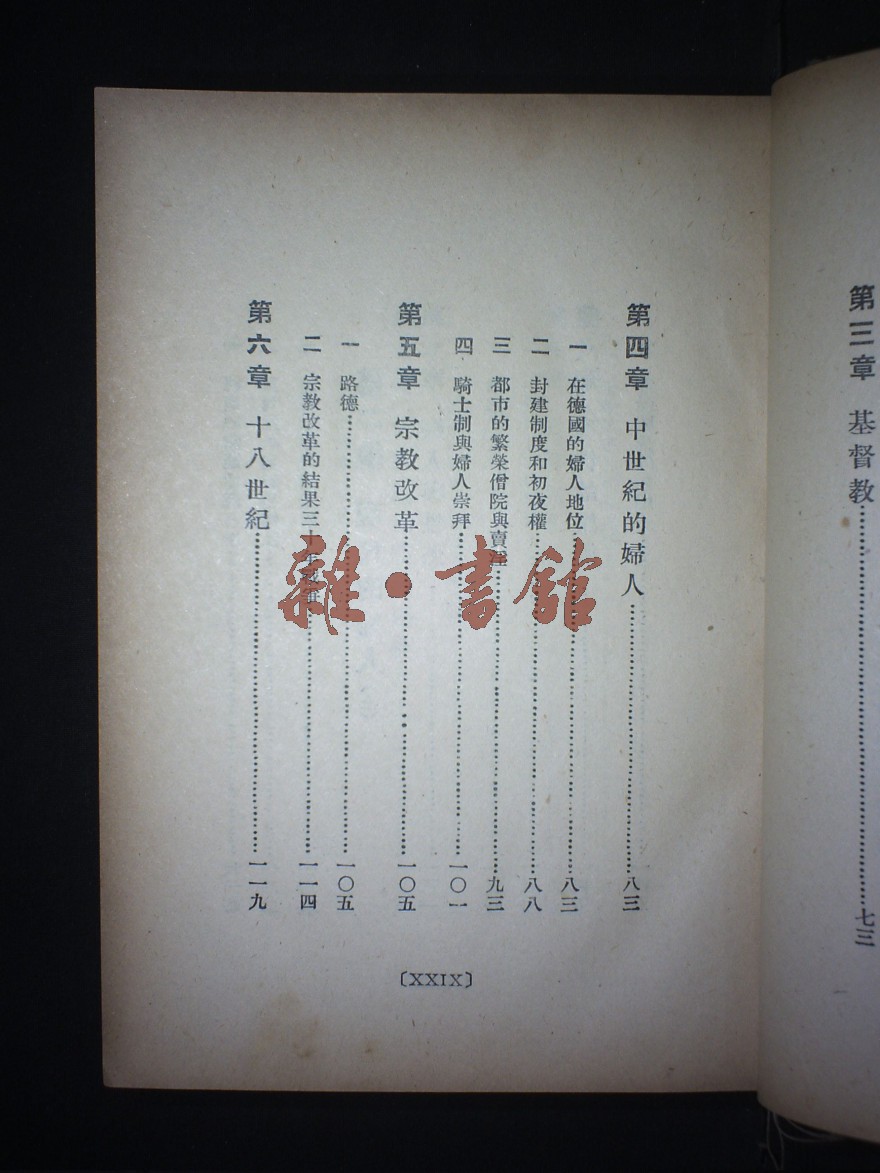 第三章 基督教……七三
第四章 中世紀的婦人……八三
一 在德國的婦人地位……八三
二 封建制度和初夜權……八八
三 都市的繁榮僧院與賣淫……九三
四 騎士制與婦人崇拜……一〇一
第五章 宗教改革……一〇五
一 路德……一〇五
二 宗教改革的結果三十年戰爭……一一四
第六章 十八世紀……一一九
〔XXIX〕
雜·書館